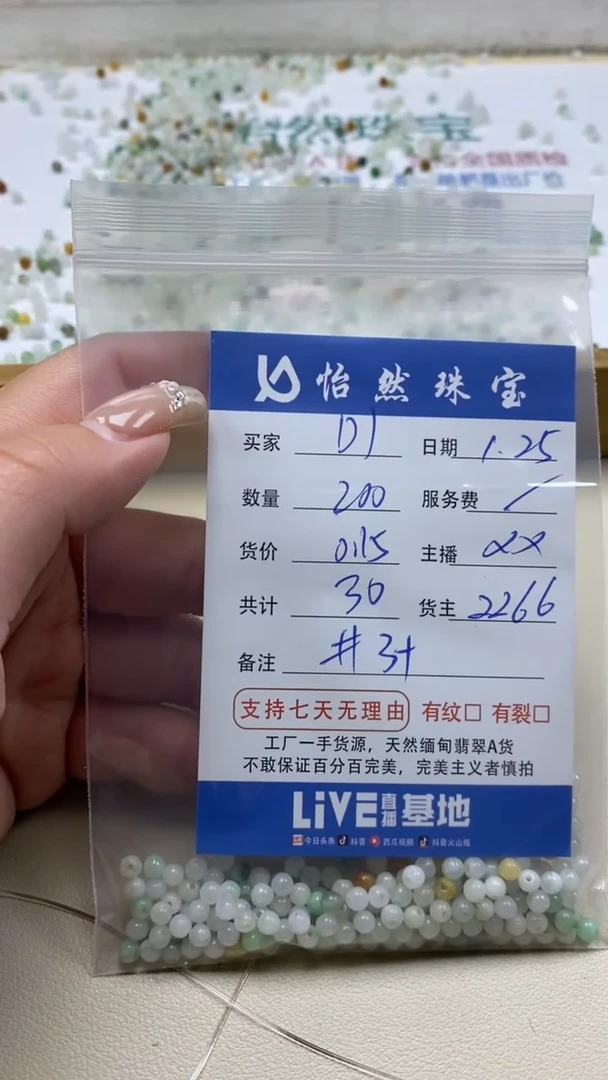 然珠宝
全国质检
出厂价
怡然珠宝
买家 D1 日期 1.25
数量 200 服务费 /
货价 0.15 主播 xx
共计 30 货主 2266
备注 #3+
支持七天无理由 有纹□ 有裂□
工厂一手货源，天然缅甸翡翠A货
不敢保证百分百完美，完美主义者慎拍
LiVE直播基地
今日头条 抖音 西瓜视频 抖音火山版